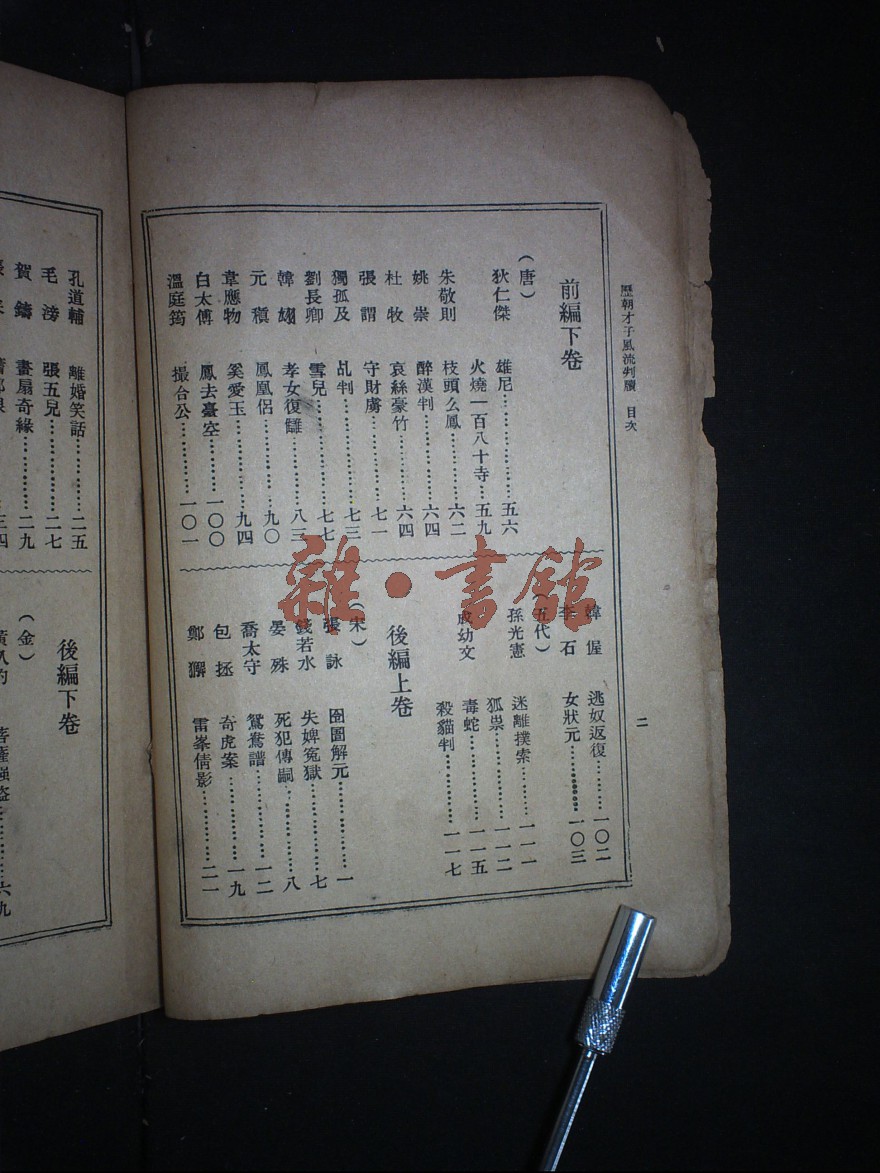 歷朝才子風流判牘 目次
二
前編下卷
(唐)
狄仁傑 雄尼………………五六
火燒一百八十寺…五九
朱敬則 枝頭么鳳…………六二
姚崇 醉漢判……………六四
杜牧 哀絲豪竹…………六四
張謂 守財虜……………七一
獨孤及 乩判………………七三
劉長卿 雪兒………………七七
韓翃 孝女復讎…………八三
元稹 鳳凰侶……………九〇
韋應物 奚愛玉……………九四
白太傅 鳳去臺空…………一〇〇
溫庭筠 撮合公……………一〇一
韓偓 逃奴返復…………一〇二
李石 女狀元……………一〇三
(五代)
孫光憲 迷離撲索…………一一一
狐祟………………一一二
成幼文 毒蛇………………一一五
殺貓判……………一一七
後編上卷
(宋)
張詠 囹圄解元…………一
錢若水 失婢冤獄…………七
晏殊 死犯傳嗣…………八
喬太守 鴛鴦譜……………一二
包拯 奇虎案……………一九
鄭獬 雷峯倩影…………二一
孔道輔 離婚笑話…………二五
毛滂 張五兒……………二七
賀鑄 畫扇奇緣…………二九
三四
後編下卷
(金)
六九
雜·書館